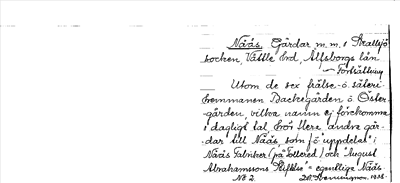 Nääs, Gårdar m.m. i Skallsjö
socken, Vättle hd, Älfsborgs län
Fortsättning
Utom de sex frälse- o. säteri
hemmanen Backegården o. Öster-
gården, vilka namn ej förekomma
i dagligt tal, höra flera andra går-
dar till Nääs, som jo uppdelat i
Nääs Fabriker (på Tollered) och August
Abrahamssons Stiftelse = egentliga Nääs
No 2.